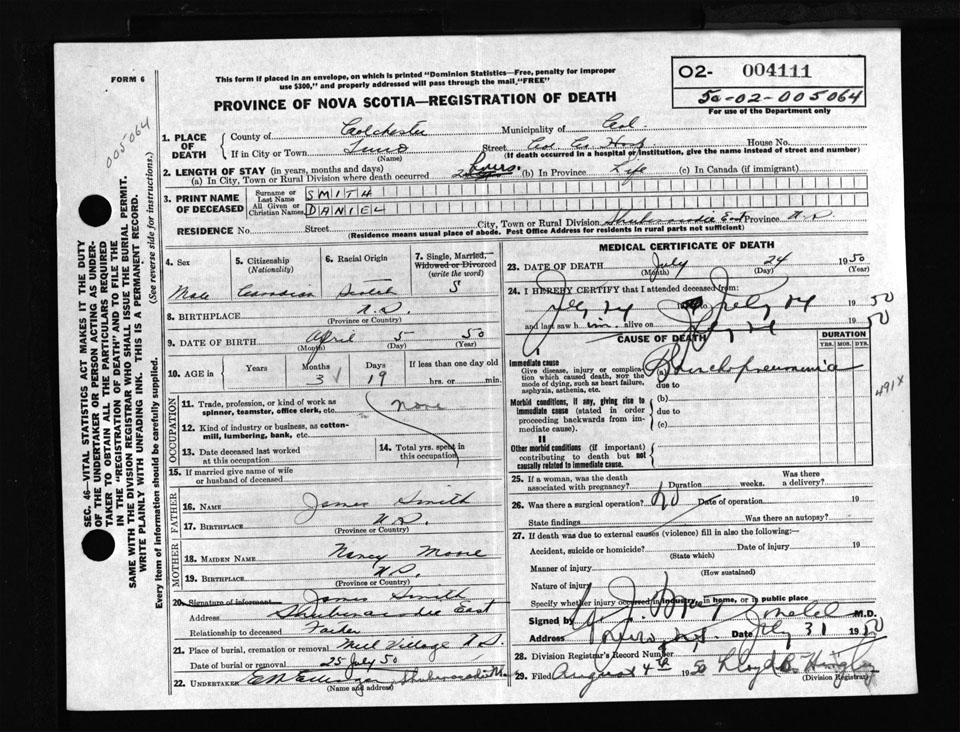 FORM 6
This form if placed in an envelope, on which is printed "Dominion Statistics—Free, penalty for improper
use $300," and properly addressed will pass through the mail, "FREE"
PROVINCE OF NOVA SCOTIA—REGISTRATION OF DEATH
O2- 004111
50-02-005064
For use of the Department only
005064
1. PLACE OF DEATH
County of Colchester Municipality of Col.
If in City or Town Truro Street Col Co Hosp House No.
(Name) (If death occurred in a hospital or institution, give the name instead of street and number)
2. LENGTH OF STAY (in years, months and days)
(a) In City, Town or Rural Division where death occurred 2 hours. (b) In Province Life (c) In Canada (if immigrant)
3. PRINT NAME OF DECEASED
Surname or Last Name SMITH
All Given or Christian Names DANIEL
RESIDENCE No. Street City, Town or Rural Division Shubenacadie East Province N.S.
(Residence means usual place of abode. Post Office Address for residents in rural parts not sufficient)
4. Sex
Male
5. Citizenship
(Nationality)
Canadian
6. Racial Origin
Scotch
7. Single, Married,
Widowed or Divorced
(write the word)
S
8. BIRTHPLACE N.S.
(Province or Country)
9. DATE OF BIRTH April 5 50
(Month) (Day) (Year)
10. AGE in
Years Months Days If less than one day old
3 19 hrs. or min.
OCCUPATION
11. Trade, profession, or kind of work as
spinner, teamster, office clerk, etc. None
12. Kind of industry or business, as cotton-
mill, lumbering, bank, etc.
13. Date deceased last worked
at this occupation
14. Total yrs. spent in
this occupation
15. If married give name of wife
or husband of deceased
FATHER
16. Name James Smith
17. Birthplace N.S.
(Province or Country)
MOTHER
18. Maiden Name Nancy Moore
19. Birthplace N.S.
(Province or Country)
20. Signature of informant James Smith
Address Shubenacadie East
Relationship to deceased Father
21. Place of burial, cremation or removal Mill Village N.S.
Date of burial or removal 25 July 50
22. Undertaker
(Name and address)
MEDICAL CERTIFICATE OF DEATH
23. DATE OF DEATH July 24 1950
(Month) (Day) (Year)
24. I HEREBY CERTIFY that I attended deceased from:
July 24 to July 24 1950
and last saw him alive on July 24 50
CAUSE OF DEATH
DURATION
YRS. MOS. DYS.
I
Immediate cause
Give disease, injury or complica-
tion which caused death, NOT the
mode of dying, such as heart failure,
asphyxia, asthenia, etc.
(a) Bronchopneumonia
due to
Morbid conditions, if any, giving rise to
immediate cause (stated in order
proceeding backwards from im-
mediate cause).
(b)
due to
(c)
491X
II
Other morbid conditions (if important)
contributing to death but not
causally related to immediate cause.
25. If a woman, was the death
associated with pregnancy? Duration weeks. Was there
a delivery?
26. Was there a surgical operation? No Date of operation 19
State findings Was there an autopsy?
27. If death was due to external causes (violence) fill in also the following:—
Accident, suicide or homicide? Date of injury 19
(State which)
Manner of injury
(How sustained)
Nature of injury
Specify whether injury occurred in industry, in home, or in public place
Signed by M.D.
Address Truro N.S. Date July 31 1950
28. Division Registrar's Record Number
29. Filed August 4th 1950 Lloyd B.
(Division Registrar)
SEC. 46—VITAL STATISTICS ACT MAKES IT THE DUTY
OF THE UNDERTAKER OR PERSON ACTING AS UNDER-
TAKER TO OBTAIN ALL THE PARTICULARS REQUIRED
IN THE "REGISTRATION OF DEATH" AND TO FILE THE
SAME WITH THE DIVISION REGISTRAR WHO SHALL ISSUE THE BURIAL PERMIT.
WRITE PLAINLY WITH UNFADING INK. THIS IS A PERMANENT RECORD.
Every item of information should be carefully supplied. (See reverse side for instructions.)